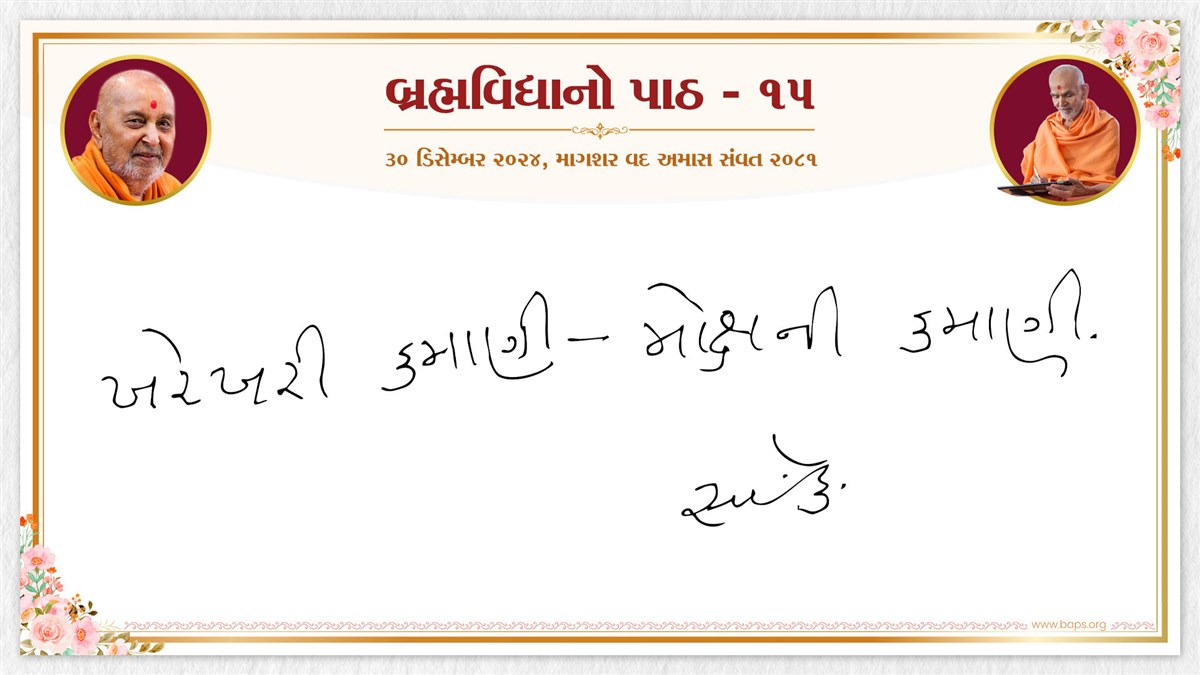 બ્રહ્મવિદ્યાનો પાઠ - ૧૫
૩૦ ડિસેમ્બર ૨૦૨૪, માગશર વદ અમાસ સંવત ૨૦૮૧
ખરેખરી કમાણી – મોક્ષની કમાણી.
www.baps.org